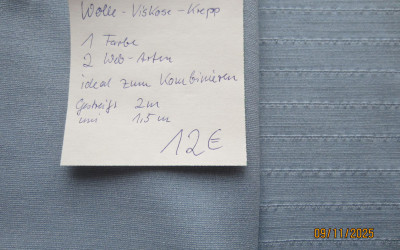 Wolle-Viskose-Krepp
1 Farbe
2 Web-Arten
ideal zum Kombinieren
Gestreift 2m
uni 1,5m
12€
09/11/2025